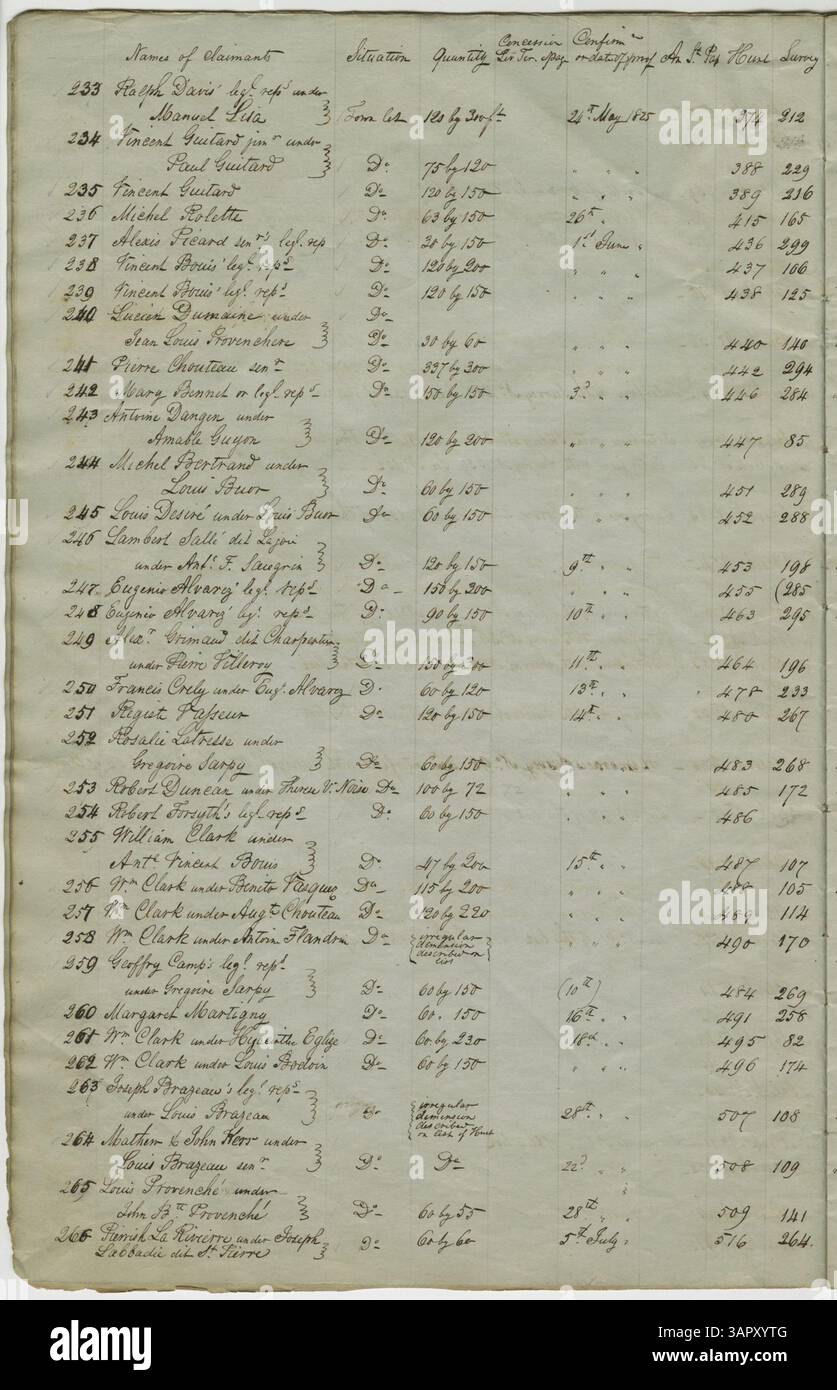 Names of Claimants Situation Quantity Concession Confirmn An St Pap Hunt Survey
Liv Ter & pag or date of proof
233 Ralph Davis' legl. reps under
Manuel Lisa } Town lot 120 by 300 ft 24th May 1825 374 212
234 Vincent Guitard junr under
Paul Guitard } Do 75 by 120 " " " 388 229
235 Vincent Guitard Do 120 by 150 " " " 389 216
236 Michel Rolette Do 63 by 150 26th " 415 165
237 Alexis Picard senr's legl. rep Do 20 by 150 1st June " 436 299
238 Vincent Bouis' legl. reps Do 120 by 200 " " " 437 106
239 Vincent Bouis' legl. reps Do 120 by 150 " " " 438 125
240 Lucien Dumaine under Do
Jean Louis Provenchere } Do 30 by 60 " " " 440 140
241 Pierre Chouteau senr Do 337 by 300 " " " 442 294
242 Marg Bennet or legl. reps Do 150 by 150 3d " " 446 284
243 Antoine Dangen under
Amable Guyon } Do 120 by 200 " " " 447 85
244 Michel Bertrand under
Louis Buor } Do 60 by 150 " " " 451 289
245 Louis Desiré under Louis Buor Do 60 by 150 " " " 452 288
246 Lambert Sallé dit Lajoie
under Ant. F. Saugrin } Do 120 by 150 9th " " 453 198
247 Eugenio Alvarez' legl. reps Do 150 by 200 455 (285
248 Eugenio Alvarez' legl. reps Do 90 by 150 10th " " 463 295
249 Alexr Grimaud dit Charpentier
under Pierre Villeroy } Do 150 by 200 11th " " 464 196
250 Francis Crely under Eugo Alvarez Do 60 by 120 13th " " 478 233
251 Regist Vasseur Do 120 by 150 14th " " 480 267
252 Rosalie Latresse under
Gregoire Sarpy } Do 60 by 150 " " " 483 268
253 Robert Duncan under Therese V. Noise Do 100 by 72 " " " 485 172
254 Robert Forsyth's legl. reps Do 60 by 150 " " " 486
255 William Clark under
Ante Vincent Bouis } Do 47 by 200 15th " " 487 107
256 Wm Clark under Benito Vasquis Do 115 by 200 " " " 488 105
257 Wm Clark under Augte Chouteau Do 120 by 220 " " " 489 114
258 Wm Clark under Antoine Flandrin Do {irregular dimension described on list} " " " 490 170
259 Geoffry Camp's legl. reps
under Gregoire Sarpy } Do 60 by 150 (10th) 484 269
260 Margaret Martigny Do 60 . 150 16th " " 491 258
261 Wm Clark under Hyacinthe Eglize Do 60 by 230 18th " " 495 82
262 Wm Clark under Louis Bodoin Do 60 by 150 " " " 496 174
263 Joseph Brazeau's legl. reps
under Louis Brazeau } Do {irregular dimension described on list of Hunt 28th " " 507 108
264 Mathew & John Kerr under
Louis Brazeau senr } Do Do 22d " " 508 109
265 Louis Provenché under
John Bte Provenché } Do 60 by 55 28th " 509 141
266 Pierrish La Rivierre under Joseph
Labbadie dit St Pierre } Do 60 by 60 5th July " 516 264
alamy
Image ID: 3APXYTG
www.alamy.com